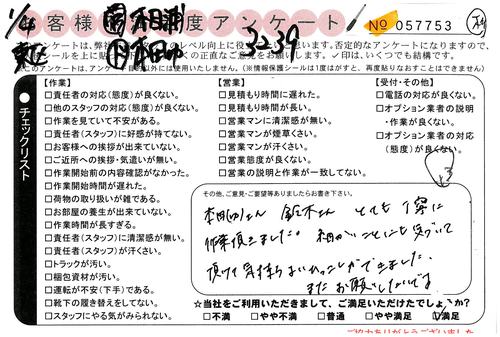 1/4 お客様満足度アンケート No 057753
3239
本アンケートは、弊社
レベル向上に役
思います。否定的なアンケートになりますので、
直なご意見をお聞かせ下さい。✓印は、いくつでも結構です。
このアンケートは、アンケート目的以外には使用いたしません。(※情報保護シールは1度はがすと、再度貼りなおすことはできません)
●チェックリスト
【作業】
□責任者の対応(態度)が良くない。
□他のスタッフの対応(態度)が良くない。
□作業を見ていて不安がある。
□責任者(スタッフ)に好感が持てない。
□お客様への挨拶が出来ていない。
□ご近所への挨拶・気遣いが無い。
□作業開始前の内容確認がなかった。
□作業開始時間が遅れた。
□荷物の取り扱いが雑である。
□お部屋の養生が出来ていない。
□作業時間が長すぎる。
□責任者(スタッフ)に清潔感が無い。
□責任者(スタッフ)が汗くさい。
□トラックが汚い。
□梱包資材が汚い。
□運転が不安(下手)である。
□靴下の履き替えをしてない。
□スタッフにやる気がみられない。
【営業】
□見積もり時間に遅れた。
□見積もり時間が長い。
□営業マンに清潔感が無い。
□営業マンが煙草くさい。
□営業マンが汗くさい。
□営業態度が良くない。
□営業の説明と作業が一致してない。
【受付・その他】
□電話の対応が良くない。
□オプション業者の説明・作業が良くない。
□オプション業者の対応(態度)が良くない。
その他、ご意見・ご要望等ありましたらお書き下さい。
本田さん 鈴木さん とても丁寧に
作業頂きました。細かいことにも気づいて
頂けて気持ちよいひっこしができました。
またお願いしたいです。
☆当社をご利用いただきまして、ご満足いただけたでしょうか?
□不満 □やや不満 □普通 □やや満足 ☑満足
ご協力ありがとうございました